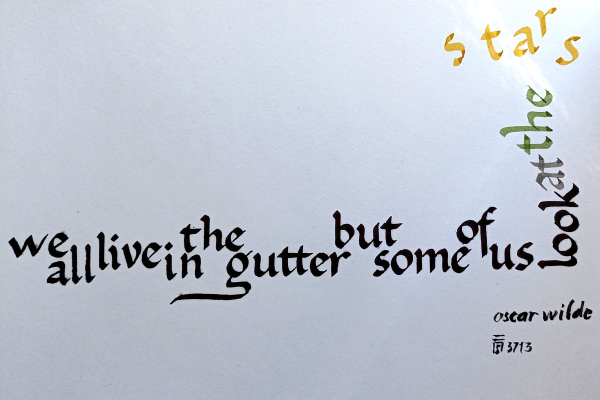 we all live in the gutter but some of us
look at the
stars
oscar wilde
3713